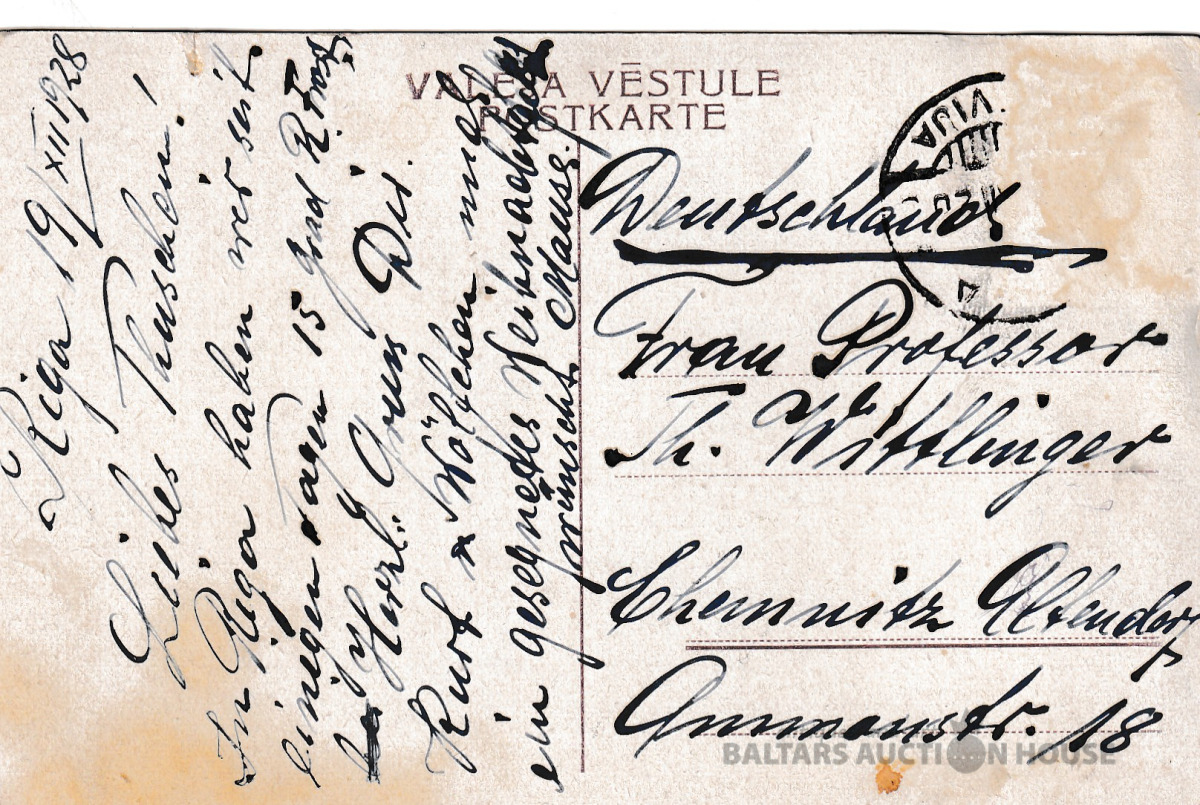 VALEJA VĒSTULE
POSTKARTE
Riga 19/XII 1928
Liebes Thuschen!
In Riga haben wir seit
einigen Tagen 15 Grad R. Frost
Herzl. Gruss Dir.
Kurt & Wölfchen und
ein gesegnetes Weihnachten
wünscht Mausg.
Deutschland
Frau Professor
Th. Wittlinger
Chemnitz Altendorf
Ammonstr. 18
VIJA
BALTARS AUCTION HOUSE